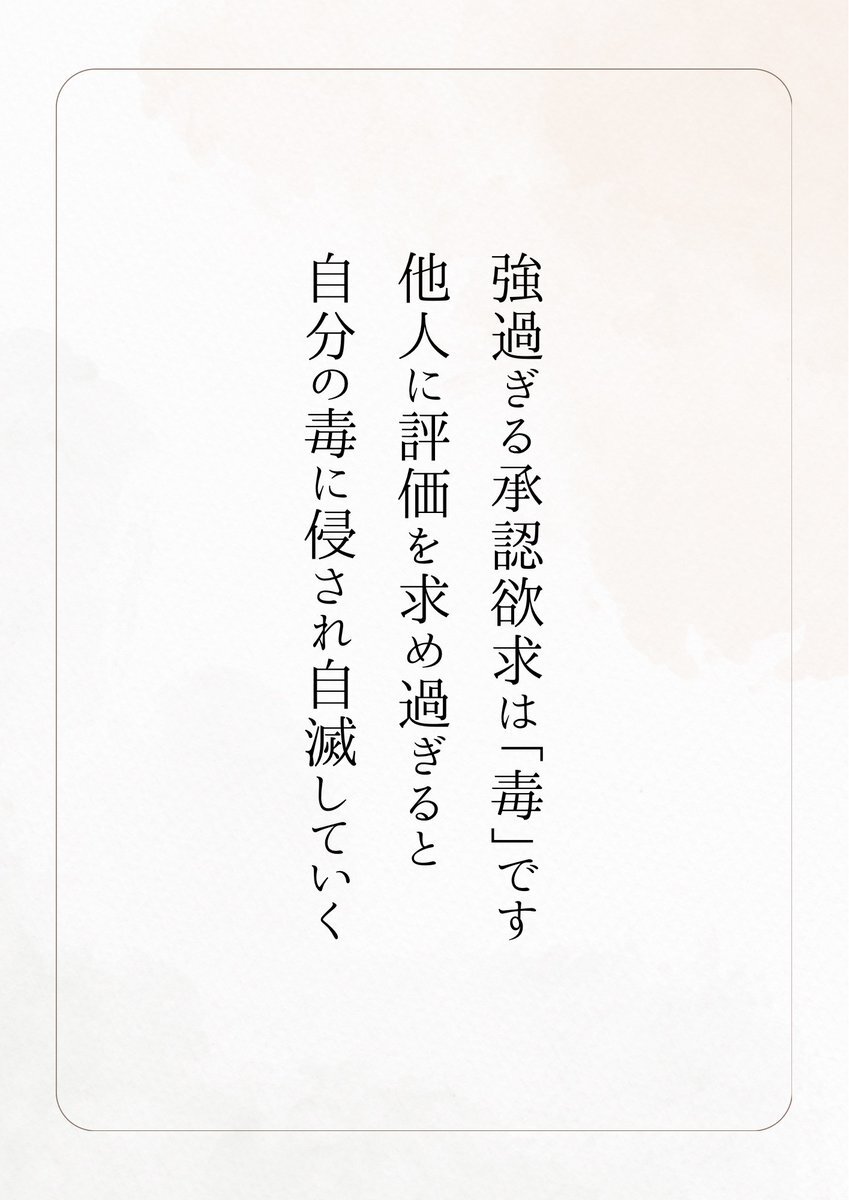 強過ぎる承認欲求は「毒」です
他人に評価を求め過ぎると
自分の毒に侵され自滅していく